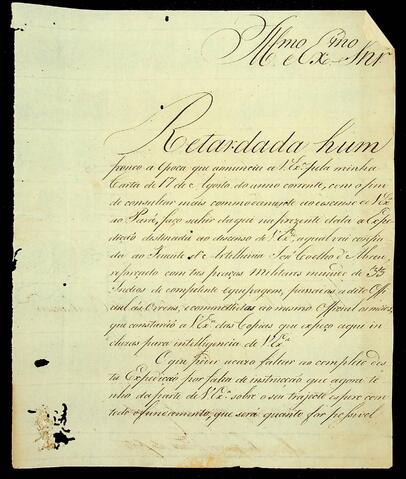 Illmo e Exmo Snr
Retardada hum
pouco a Epoca que annunciei a V.Exª pela minha
Carta de 17 de Agosto do anno corrente, com o fim
de consultar mais commodamente ao descenso de V.Exª
ao Pará, faço sahir daqui na prezente data a Expe
dição destinada ao descenso de V.Exª, a qual vai confia
da ao Tenente d'Artelharia José Coelho d'Abreu,
com tres praças Militares munido de 33
Indios de competente equipagem, o dito Offi
cial
que constarão a V.Exª das Copias que expeço aqui in
cluzas para intelligencia de V.Exª
O que puder acazo faltar no completo des
ta Expedição por falta de instrucção que agora te
nho da parte de V.Exª sobre o seu trajecto espero com
todo o fundamento, que será quanto for possivel